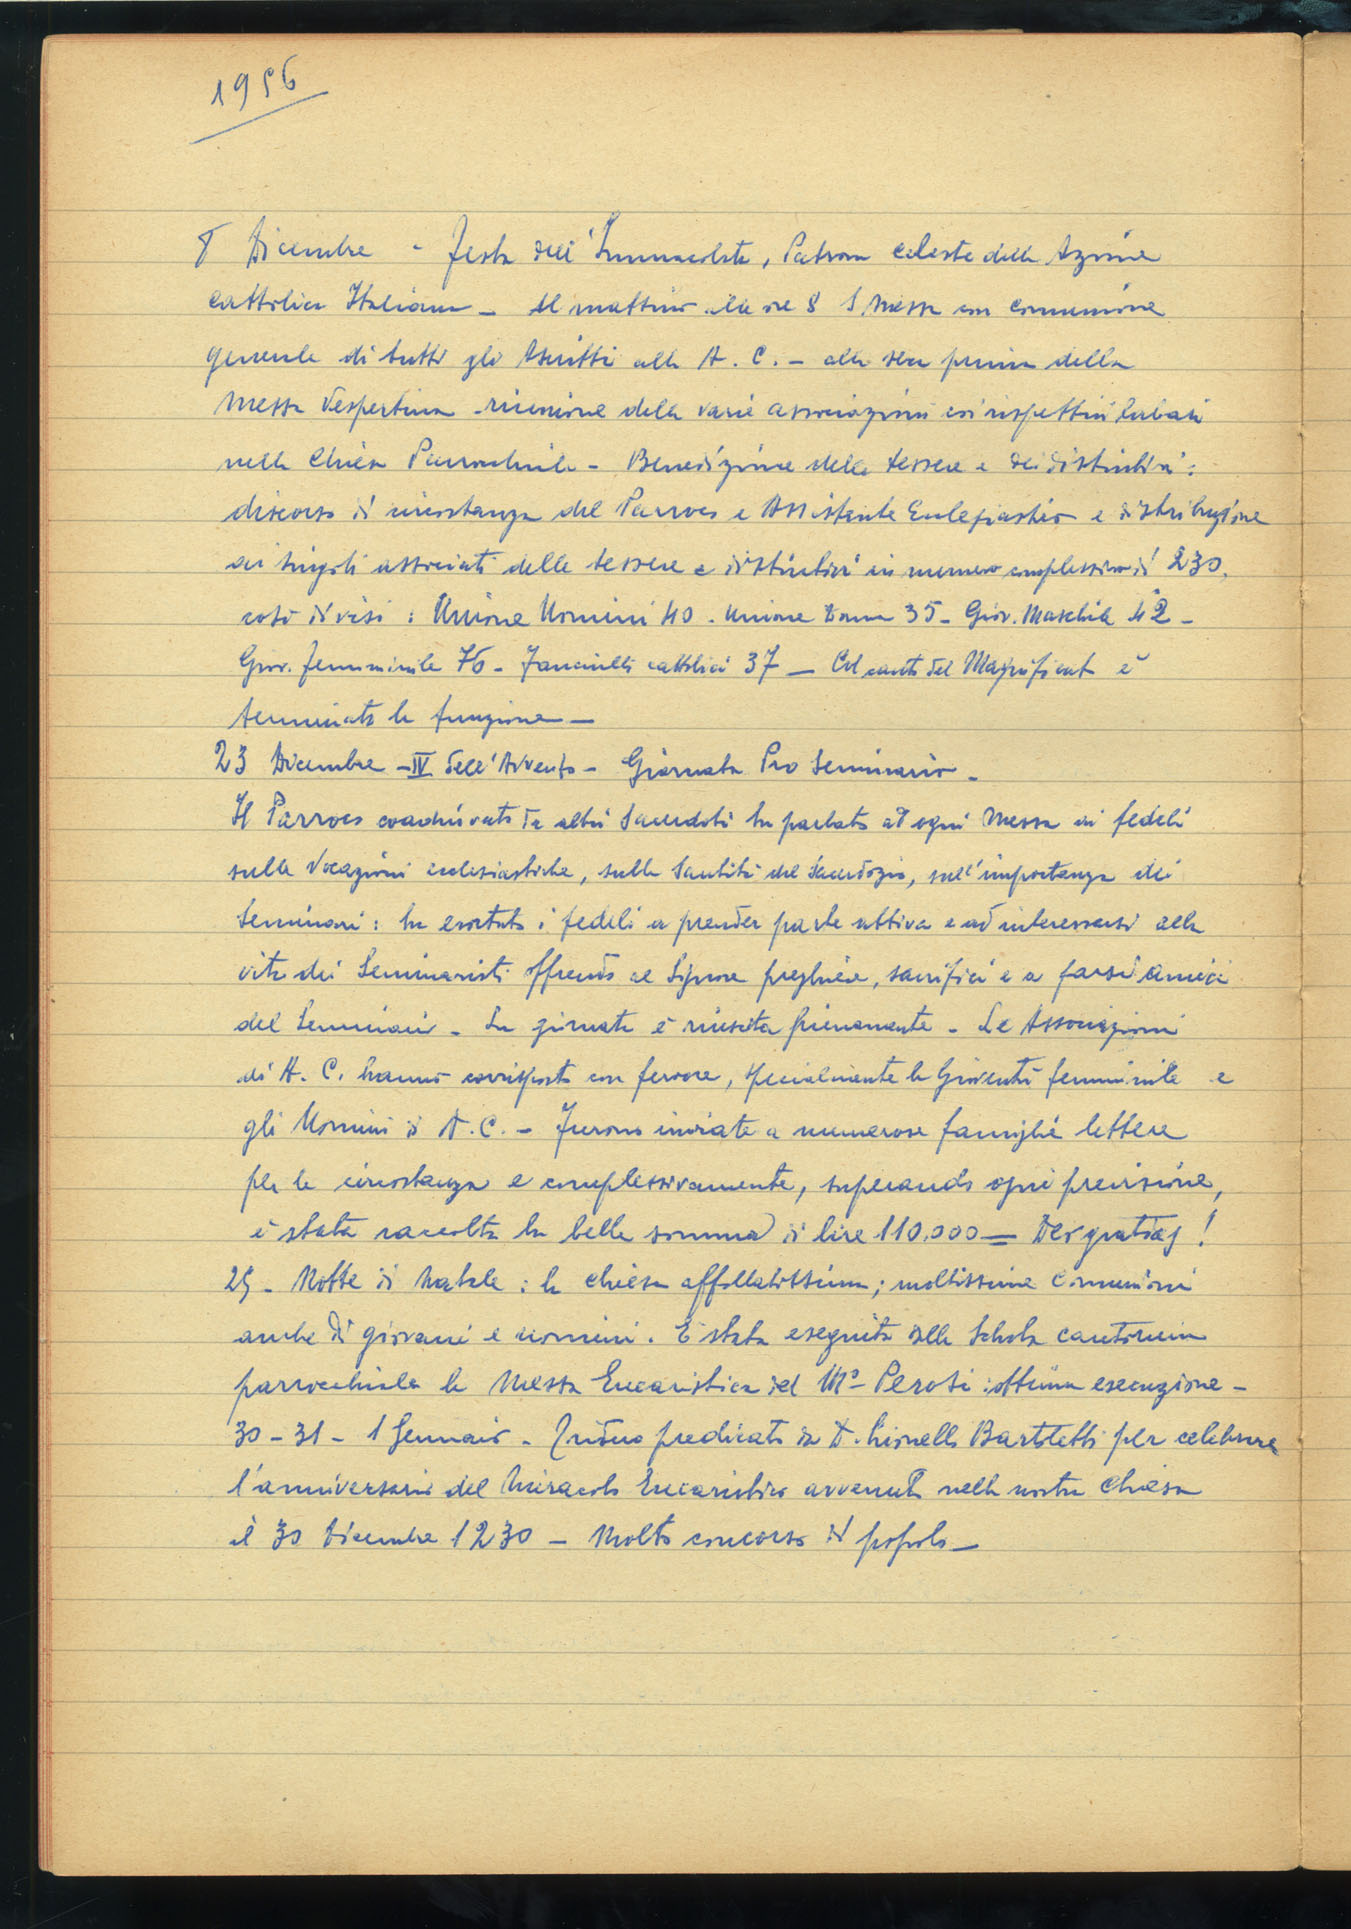 1956
8 Dicembre - Festa dell'Immacolata, Patrona celeste della Azione
Cattolica Italiana - Al mattino alle ore 8 S. Messa con comunione
generale di tutti gli Ascritti alla A. C. - alla sera prima della
Messa Vespertina riunione delle varie associazioni coi rispettivi labari
nella Chiesa Parrocchiale - Benedizione delle tessere e dei distintivi:
discorso di circostanza del Parroco e Assistente Ecclesiastico e distribuzione
ai singoli associati delle tessere e distintivi in numero complessivo di 230,
così divisi: Unione Uomini 40. Unione Donne 35 - Giov. Maschile 42 -
Giov. Femminile 76 - Fanciulli cattolici 37 - Col canto del Magnificat è
terminata la funzione -
23 Dicembre - IV dell'Avvento - Giornata Pro Seminario -
Il Parroco coadiuvato da altri Sacerdoti ha parlato ad ogni Messa ai fedeli
sulle Vocazioni ecclesiastiche, sulla Santità del Sacerdozio, sull'importanza dei
Seminari: ha esortato i fedeli a prender parte attiva e ad interessarsi alla
vita dei Seminaristi offrendo al Signore preghiere, sacrifici e a farsi amici
del Seminario - La giornata è riuscita pienamente - Le Associazioni
di A. C. hanno corrisposto con fervore, specialmente la Gioventù femminile e
gli Uomini di A. C. - Furono inviate a numerose famiglie lettere
per la circostanza e complessivamente, superando ogni previsione,
è stata raccolta la bella somma di lire 110.000 = Deo gratias!
25 - Notte di Natale: la chiesa affollatissima; moltissime Comunioni
anche di giovani e uomini. È stata eseguita dalla Schola cantorum
parrocchiale la Messa Eucaristica del M° Perosi: ottima esecuzione -
30 - 31 - 1 Gennaio - Triduo predicato da D. Lionello Bartoletti per celebrare
l'anniversario del Miracolo Eucaristico avvenuto nella nostra Chiesa
il 30 Dicembre 1230 - Molto concorso di popolo -